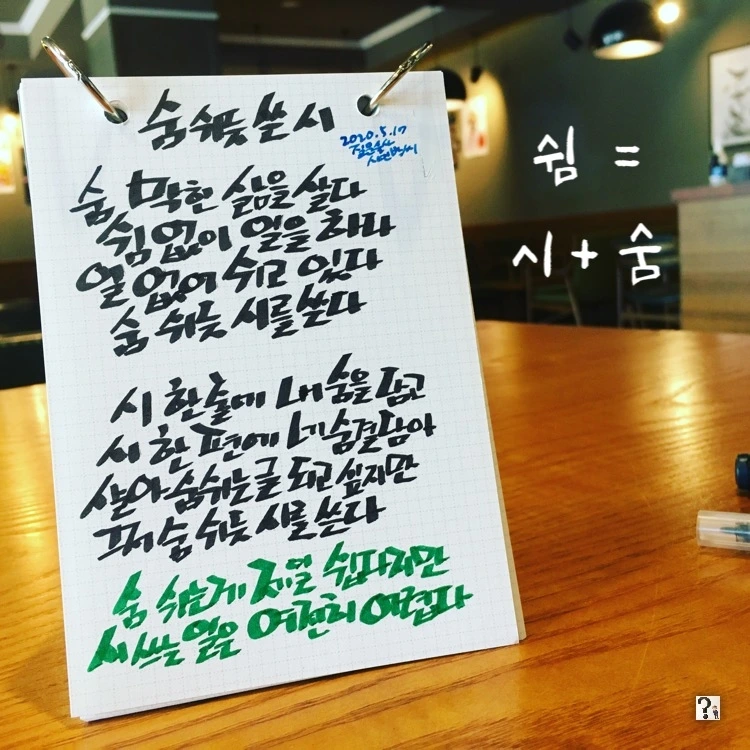 숨 쉬듯 쓴 시
2020.5.17
질문술사
시인박씨
숨 막힌 삶을 살다
쉼 없이 일을 하다
일 없어 쉬고 있다
숨 쉬듯 시를 쓴다
시 한 줄에 내 숨을 담고
시 한 편에 네 숨결 담아
살아 숨쉬는 글 되고 싶지만
그저 숨 쉬듯 시를 쓴다
숨 쉬는게 제일 쉽다지만
시 쓰는 일은 여전히 어렵다
쉼 =
시 + 숨
?